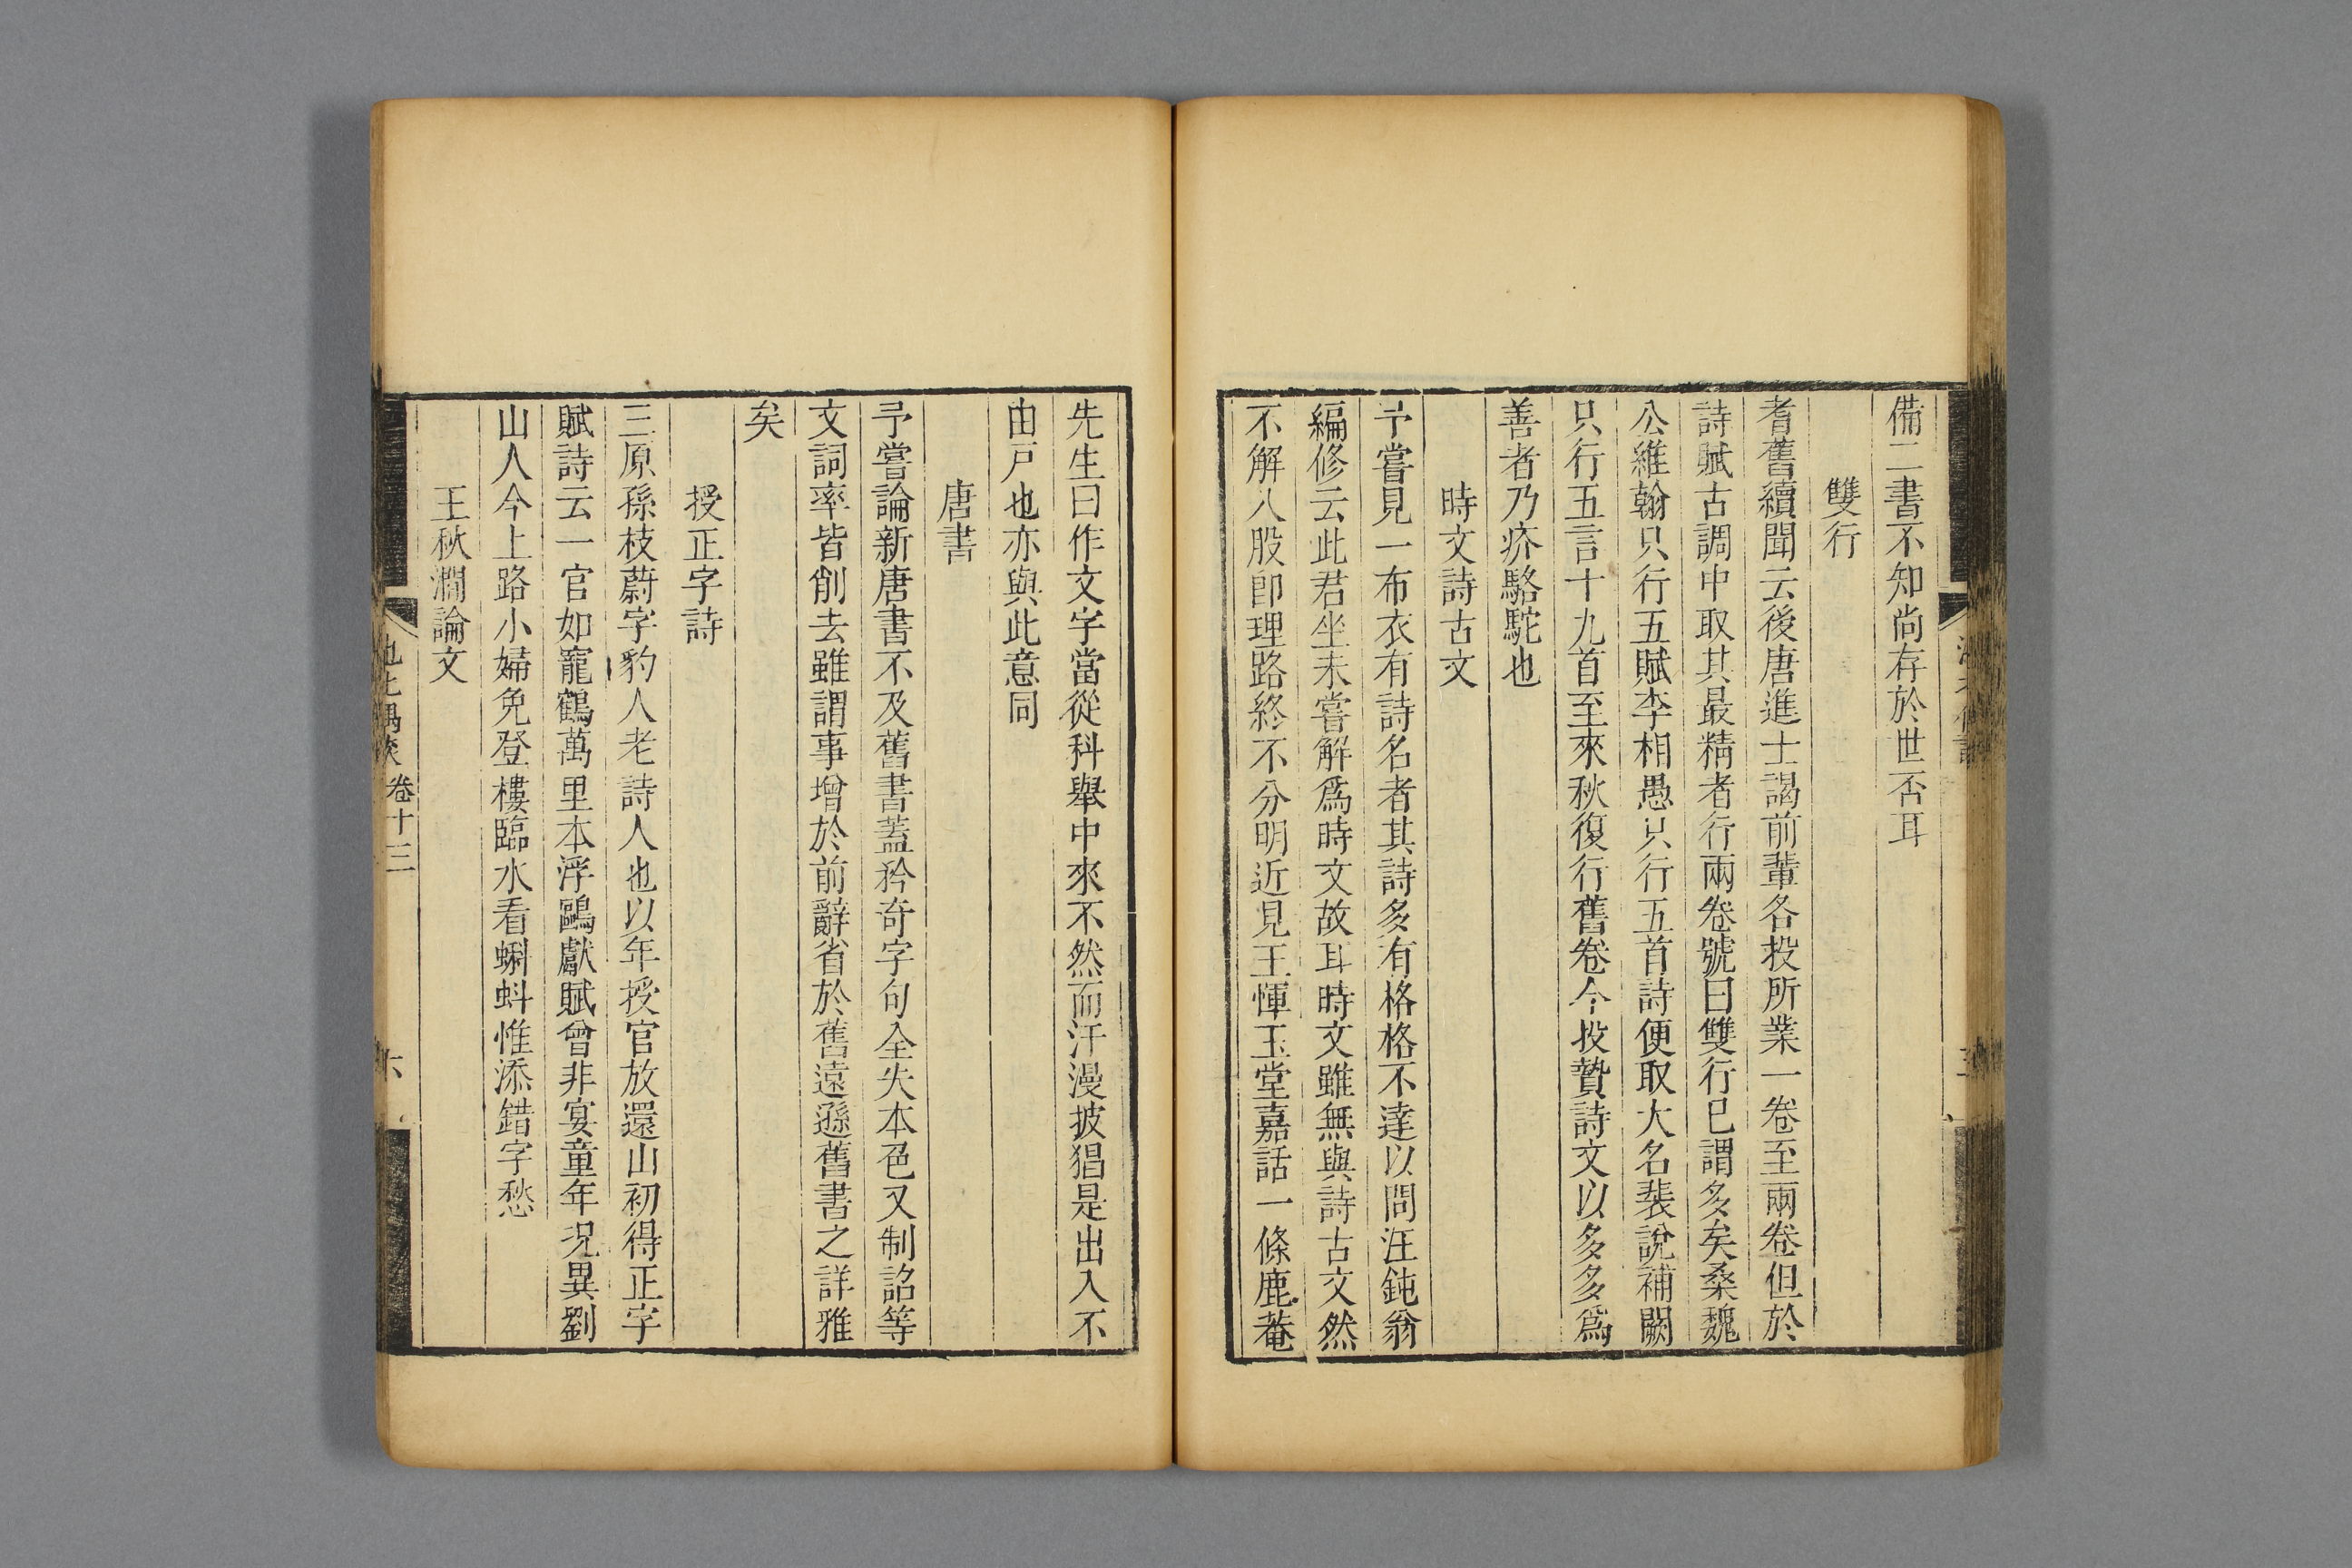 備二書不知尚存於世否耳
雙行
耆舊續聞云後唐進士謁前輩各投所業一卷至兩卷但於
詩賦古調中取其最精者行兩卷號曰雙行已謂多矣桑魏
公維翰只行五賦李相愚只行五首詩便取大名裴說補闕
只行五言十九首至來秋復行舊卷今投贄詩文以多多爲
善者乃疥駱駝也
時文詩古文
予嘗見一布衣有詩名者其詩多有格格不達以問汪鈍翁
編修云此君坐未嘗解爲時文故耳時文雖無與詩古文然
不解八股卽理路終不分明近見王惲玉堂嘉話一條鹿菴
先生曰作文字當從科舉中來不然而汗漫披猖是出入不
由戸也亦與此意同
唐書
予嘗論新唐書不及舊書蓋矜奇字句全失本色又制詔等
文詞率皆削去雖謂事增於前辭省於舊遠遜舊書之詳雅
矣
授正字詩
三原孫枝蔚字豹人老詩人也以年授官放還山初得正字
賦詩云一官如寵鶴萬里本浮鷗獻賦曾非宴童年況異劉
山人今上路小婦免登樓臨水看蝌蚪惟添錯字愁
王秋澗論文
卷十三
六